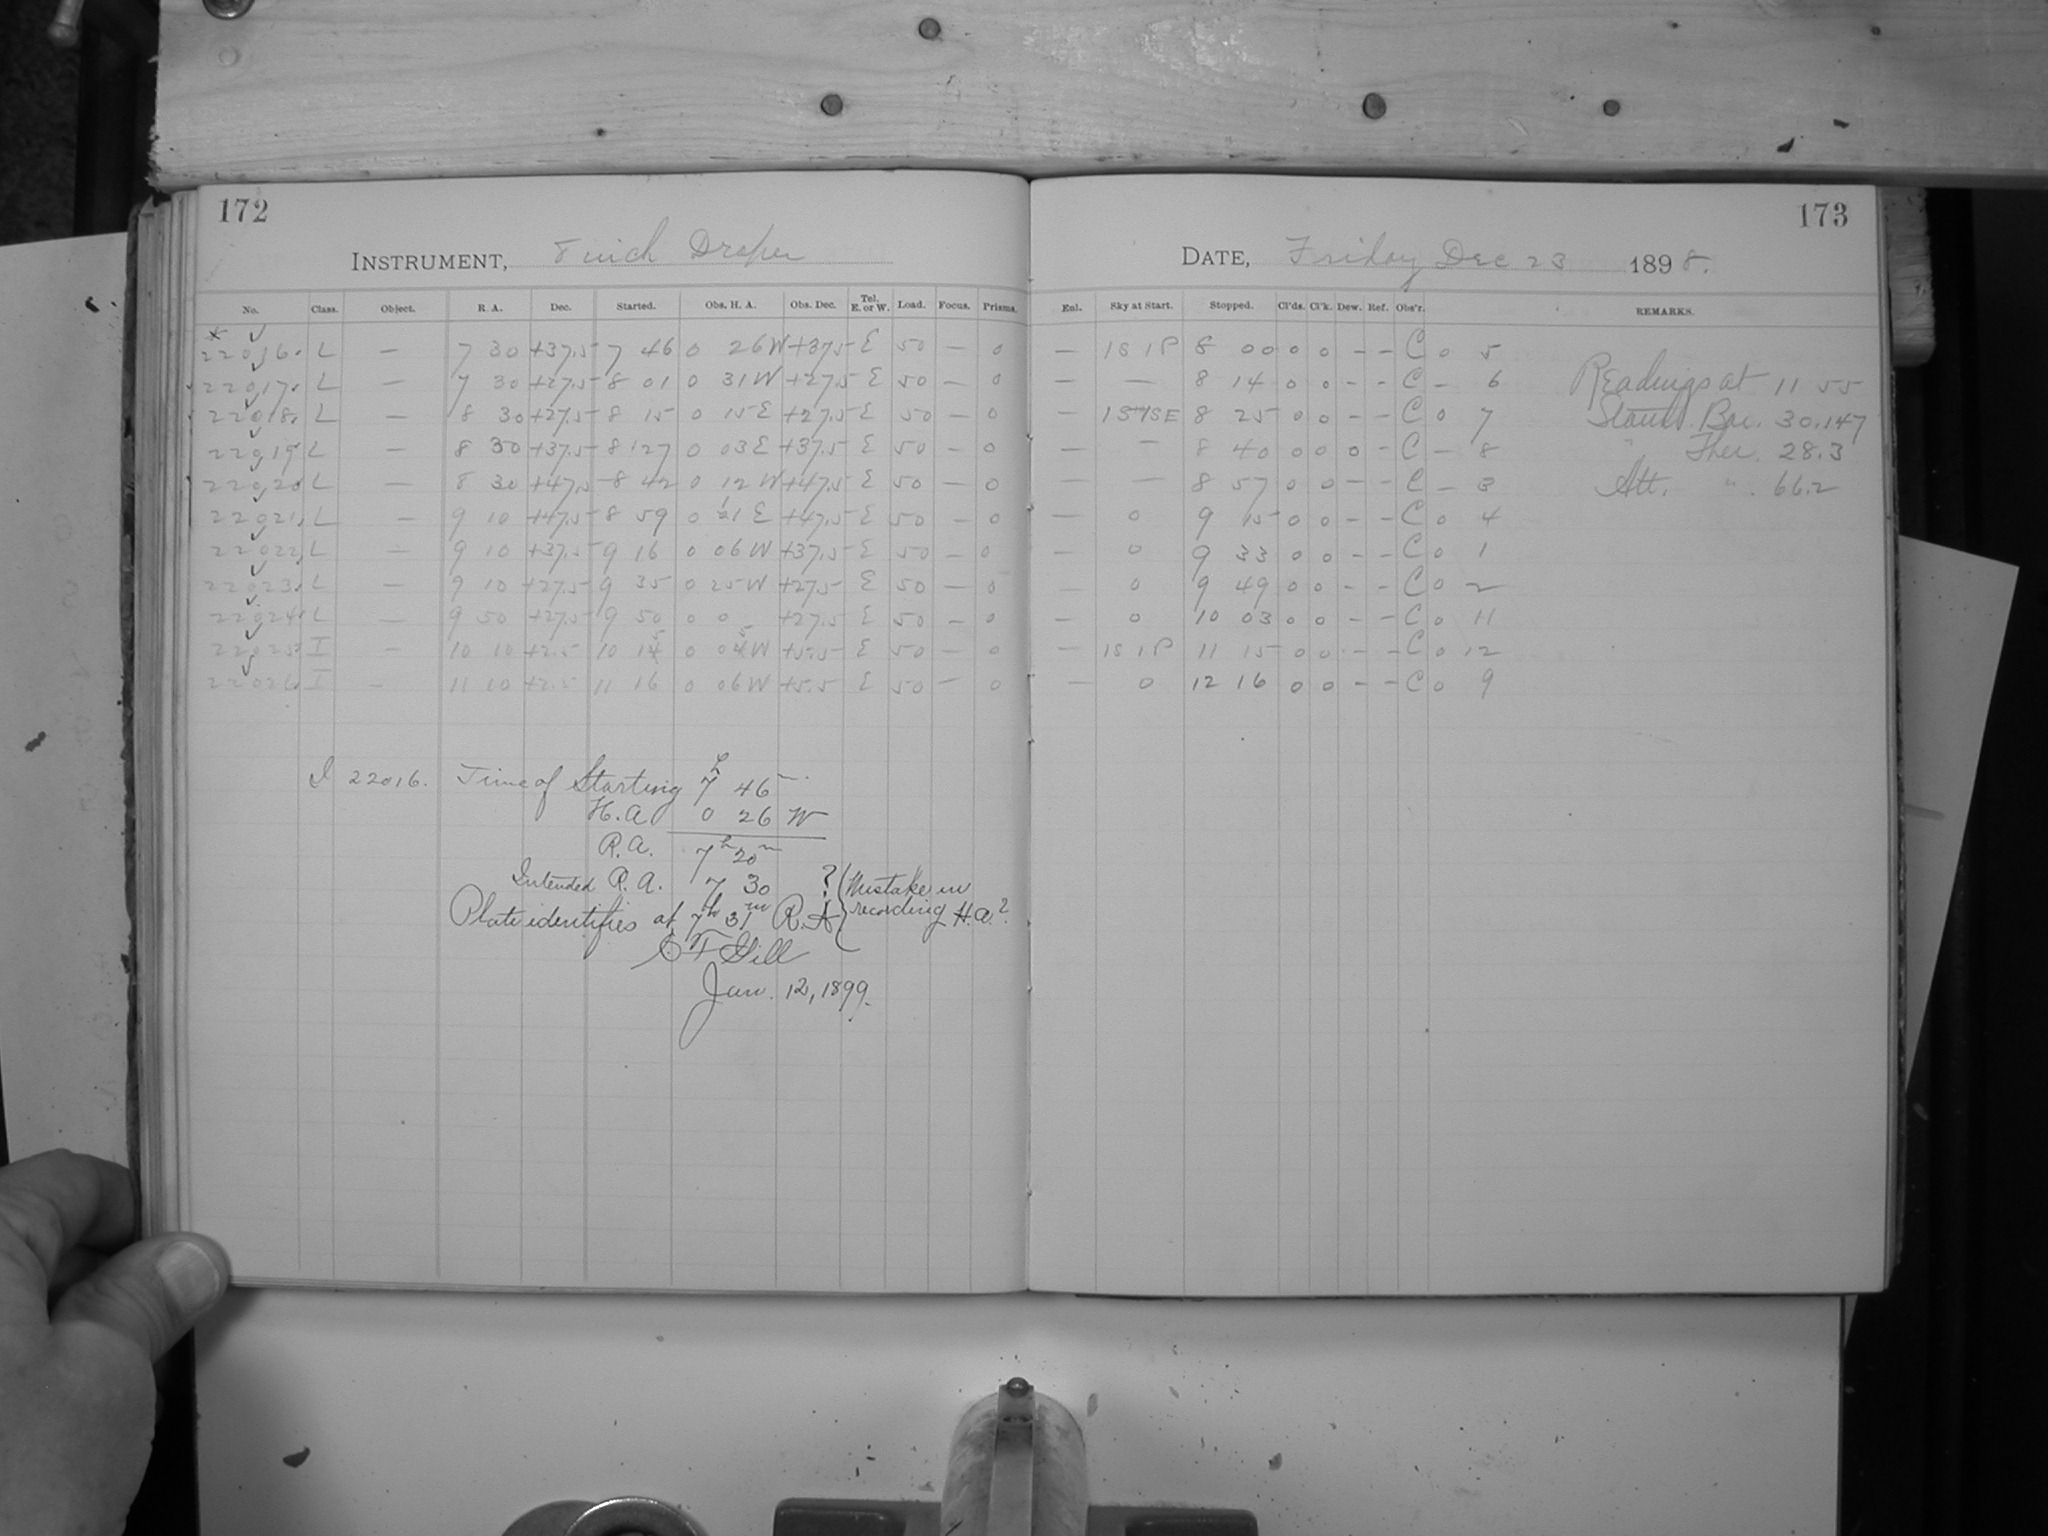 172
INSTRUMENT, 8 inch Draper
No. Class. Object. R. A. Dec. Started. Obs. H. A. Obs. Dec. Tel. E. or W. Load. Focus. Prisms.
22016. L — 7 30 +37.5 7 46 0 26 W +37.5 E 50 — 0
22017. L — 7 30 +27.5 8 01 0 31 W +27.5 E 50 — 0
22018. L — 8 30 +27.5 8 15 0 15 E +27.5 E 50 — 0
22019 L — 8 30 +37.5 8 27 0 03 E +37.5 E 50 — 0
22020 L — 8 30 +47.5 8 42 0 12 W +47.5 E 50 — 0
22021. L — 9 10 +47.5 8 59 0 E +47.5 E 50 — 0
22022 L — 9 10 +37.5 9 16 0 06 W +37.5 E 50 — 0
22023. L — 9 10 +27.5 9 35 0 25 W +27.5 E 50 — 0
22024. L — 9 50 +27.5 9 50 0 0 +27.5 E 50 — 0
22025 I — 10 10 +2.5 10 0 W E 50 — 0
22026. I — 11 10 +2.5 11 16 0 06 W +5.5 E 50 — 0
I 22016. Time of Starting 7h 46m
H. A. 0 26 W
R. A. 7h 20m
Intended R. A. 7 30 ? (Mistake in
Plate identifies at 7h 31m R. A recording H. A.?
Gill
Jan. 12, 1899.
173
DATE, Friday Dec 23 1898.
Enl. Sky at Start. Stopped. Cl'ds. Cl'k. Dew. Ref. Obs'r. REMARKS.
— 1S 1P 8 00 0 0 — — C 0 5
— — 8 14 0 0 — — C — 6 Readings at 11 55
— 8 25 0 0 — — C 0 7 Stand. Bar. 30.147
— — 8 40 0 0 0 — C — 8 " Ther. 28.3
— — 8 57 0 0 — — C — 3 Att. " . 66.2
— 0 9 15 0 0 — — C 0 4
— 0 9 33 0 0 — — C 0 1
— 0 9 49 0 0 — — C 0 2
— 0 10 03 0 0 — — C 0 11
— 1S 1P 11 15 0 0 — — C 0 12
— 0 12 16 0 0 — — C 0 9